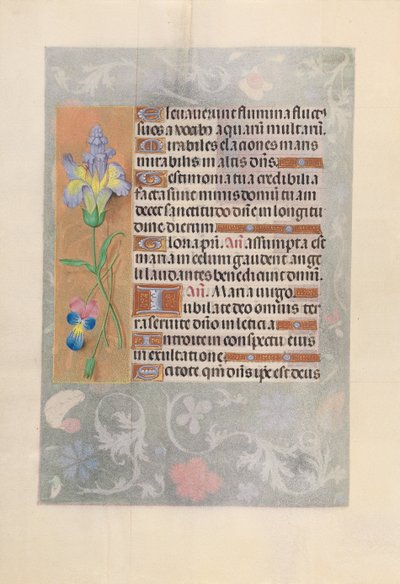 Eleuauerūt flumina fluct⁹
suos a vocib⁹ aquarū multarū.
Mirabiles elaciones maris
mirabilis in altis dn̄s.
Testimonia tua credibilia
facta sunt nimis domū tuam
decet sanctitudo dn̄e in longitu
dine dierum.
Gloria pr̄i. An̄. assumpta est
maria in celum gaudent ange
li laudantes benedicunt dn̄m.
An̄. Maria uirgo
Iubilate deo omnis ter
ra seruite dn̄o in leticia
Introite in conspectu eius
in exultatione
Scitote qm̄ dn̄s ip̄e est deus